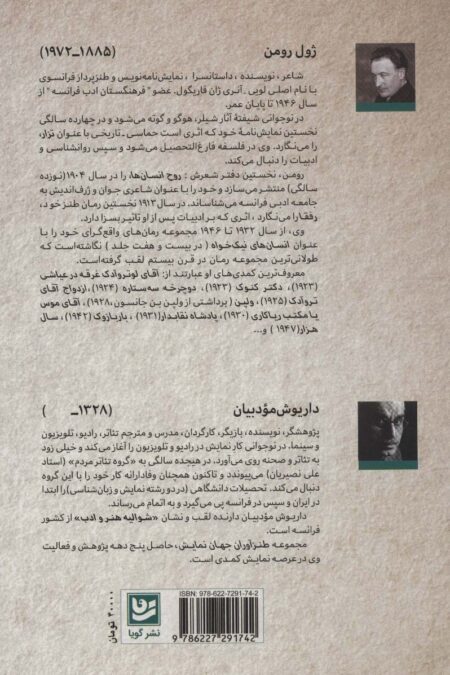 ژول رومن (۱۸۸۵ـ۱۹۷۲)
شاعر، نویسنده، داستانسرا، نمایش‌نامه‌نویس و طنزپرداز فرانسوی
با نام اصلی لویی ـ آنری ژان فاریگول. عضو "فرهنگستان ادب فرانسه" از
سال ۱۹۴۶ تا پایان عمر.
در نوجوانی شیفتهٔ آثار شیلر، هوگو و گوته می‌شود و در چهارده سالگی
نخستین نمایش‌نامهٔ خود که اثری است حماسی ـ تاریخی با عنوان تزار،
را می‌نگارد. وی در فلسفه فارغ‌التحصیل می‌شود و سپس روانشناسی و
ادبیات را دنبال می‌کند.
رومن، نخستین دفتر شعرش: روح انسان‌ها، را در سال ۱۹۰۴ (نوزده
سالگی) منتشر می‌سازد و خود را با عنوان شاعری جوان و ژرف‌اندیش به
جامعه ادبی فرانسه می‌شناساند. در سال ۱۹۱۳ نخستین رمان طنز خود،
رفقا را می‌نگارد، اثری که بر ادبیات پس از او تأثیر بسزا دارد.
وی، از سال ۱۹۳۲ تا ۱۹۴۶ مجموعه رمان‌های واقع‌گرای خود را با
عنوان انسان‌های نیک‌خواه (در بیست و هفت جلد) نگاشته‌است که
طولانی‌ترین مجموعه رمان در قرن بیستم لقب گرفته‌است.
معروف‌ترین کمدی‌های او عبارتند از: آقای لوتروآدک غرقه در عیاشی
(۱۹۲۳)، دکتر کنوک (۱۹۲۳)، دوچرخه سه‌ستاره (۱۹۲۴)، ازدواج آقای
تروآدک (۱۹۲۵)، ولپن (برداشتی از ولپن بن جانسون، ۱۹۲۸)، آقای موس
یا مکتب ریاکاری (۱۹۳۰)، پادشاه نقابدار (۱۹۳۱)، بازبازوک (۱۹۴۲)، سال
هزار (۱۹۴۷) و...
داریوش مؤدبیان (۱۳۲۸ـ )
پژوهشگر، نویسنده، بازیگر، کارگردان، مدرس و مترجم تئاتر، رادیو، تلویزیون
و سینما. در نوجوانی کار نمایش در رادیو و تلویزیون را آغاز می‌کند و خیلی زود
به تئاتر و صحنه روی می‌آورد. در هیجده سالگی به «گروه تئاتر مردم» (استاد
علی نصیریان) می‌پیوندد و تاکنون همچنان وفادارانه کار خود را با این گروه
دنبال می‌کند. تحصیلات دانشگاهی (در دو رشته نمایش و زبان‌شناسی) را ابتدا
در ایران و سپس در فرانسه پی می‌گیرد و به اتمام می‌رساند.
داریوش مؤدبیان دارنده لقب و نشان «شوالیه هنر و ادب» از کشور
فرانسه است.
مجموعه طنزآوران جهان نمایش، حاصل پنج دهه پژوهش و فعالیت
وی در عرصه نمایش کمدی است.
ISBN: 978-622-7291-74-2
9 786227 291742
نشر گویا
۴۰۰۰۰ تومان